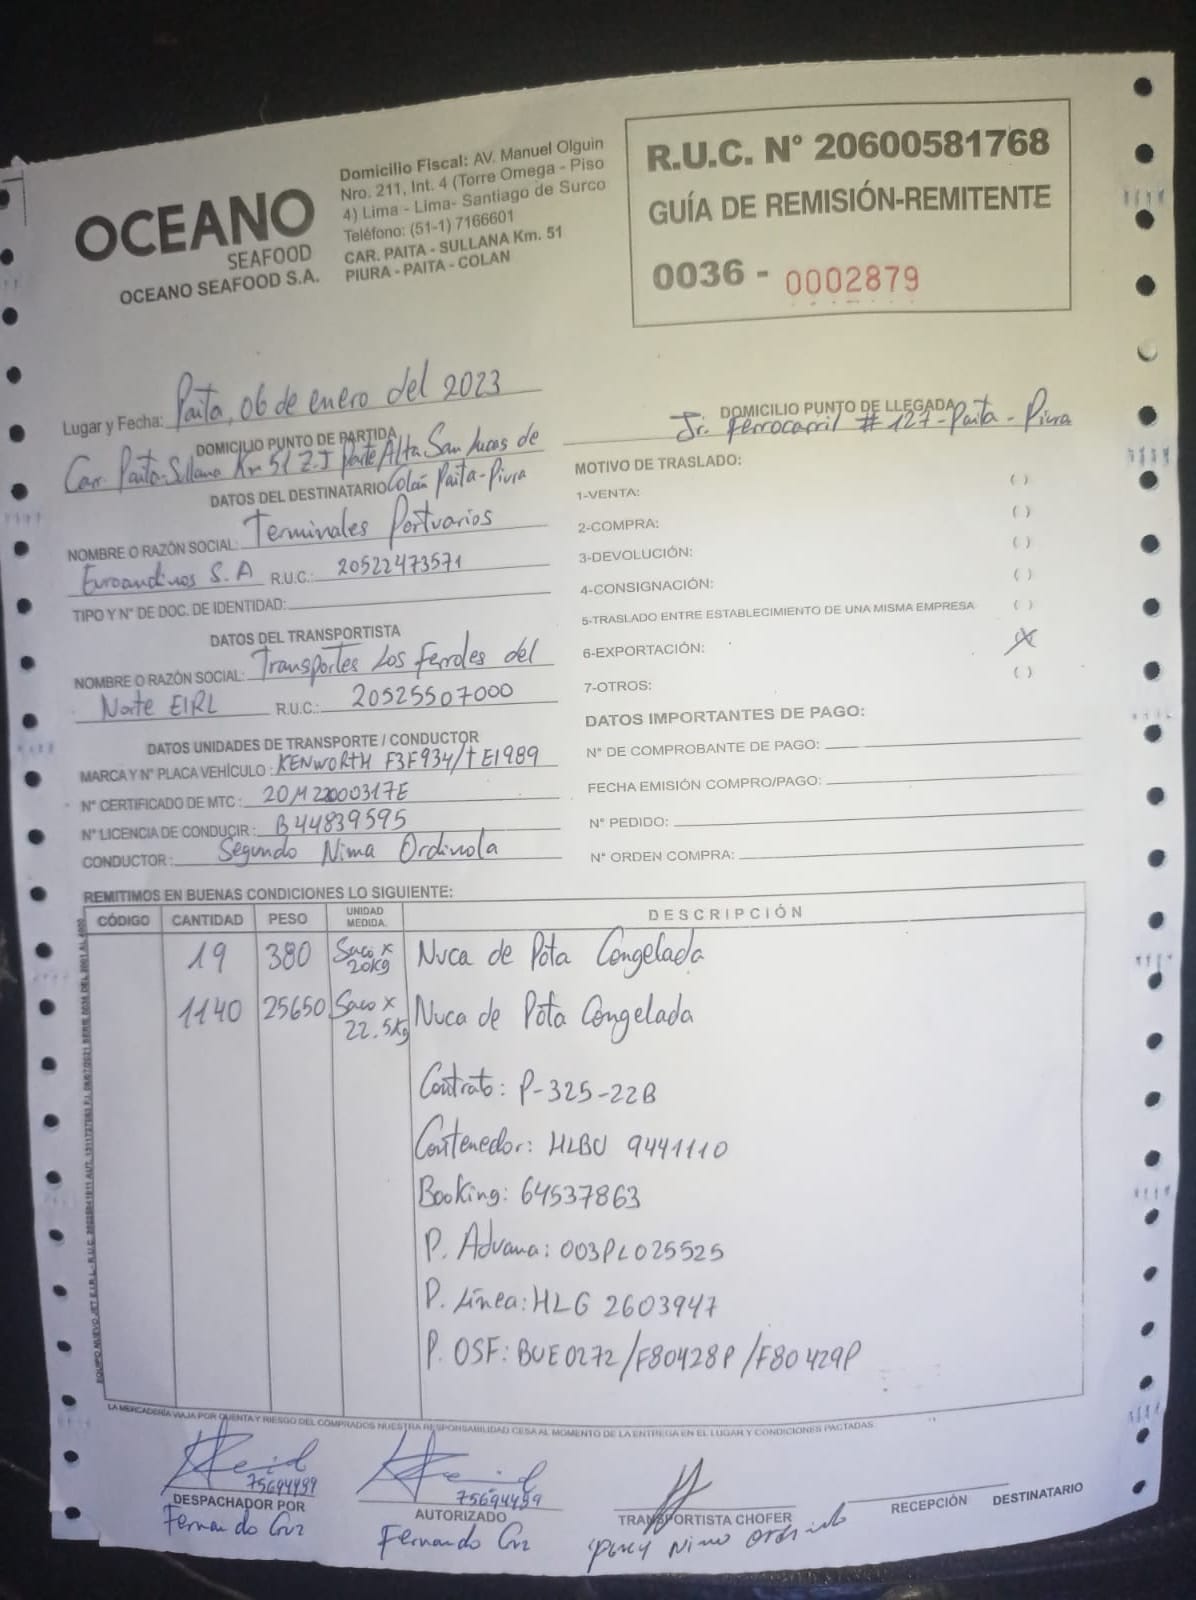 OCEANO
SEAFOOD
OCEANO SEAFOOD S.A.
Domicilio Fiscal: AV. Manuel Olguin
Nro. 211, Int. 4 (Torre Omega - Piso
4) Lima - Lima- Santiago de Surco
Teléfono: (51-1) 7166601
CAR. PAITA - SULLANA Km. 51
PIURA - PAITA - COLAN
R.U.C. N° 20600581768
GUÍA DE REMISIÓN-REMITENTE
0036 - 0002879
Lugar y Fecha: Paita, 06 de enero del 2023
DOMICILIO PUNTO DE PARTIDA
Car. Paita-Sullana Km 51 Z.I Parte Alta San Lucas de
Colán Paita-Piura
DOMICILIO PUNTO DE LLEGADA
Jr. Ferrocarril # 127-Paita - Piura
DATOS DEL DESTINATARIO
NOMBRE O RAZÓN SOCIAL: Terminales Portuarios
Euroandinos S.A R.U.C.: 20522473571
TIPO Y N° DE DOC. DE IDENTIDAD:
DATOS DEL TRANSPORTISTA
NOMBRE O RAZÓN SOCIAL: Transportes Los Ferroles del
Norte EIRL R.U.C.: 20525507000
DATOS UNIDADES DE TRANSPORTE / CONDUCTOR
MARCA Y N° PLACA VEHÍCULO: KENWORTH F3F934/TE1989
N° CERTIFICADO DE MTC: 20M2200317E
N° LICENCIA DE CONDUCIR: B44839595
CONDUCTOR: Segundo Nima Ordinola
MOTIVO DE TRASLADO:
1-VENTA: ( )
2-COMPRA: ( )
3-DEVOLUCIÓN: ( )
4-CONSIGNACIÓN: ( )
5-TRASLADO ENTRE ESTABLECIMIENTO DE UNA MISMA EMPRESA ( )
6-EXPORTACIÓN: (X)
7-OTROS: ( )
DATOS IMPORTANTES DE PAGO:
N° DE COMPROBANTE DE PAGO:
FECHA EMISIÓN COMPRO/PAGO:
N° PEDIDO:
N° ORDEN COMPRA:
REMITIMOS EN BUENAS CONDICIONES LO SIGUIENTE:
CÓDIGO CANTIDAD PESO UNIDAD MEDIDA. DESCRIPCIÓN
19 380 Saco x 20Kg Nuca de Pota Congelada
1140 25650 Saco x 22.5Kg Nuca de Pota Congelada
Contrato: P-325-22B
Contenedor: HLBU 9441110
Booking: 64537863
P. Aduana: 003PL025525
P. Línea: HLG 2603947
P. OSF: BUE0272/F80428P/F80429P
LA MERCADERÍA VIAJA POR CUENTA Y RIESGO DEL COMPRADOS NUESTRA RESPONSABILIDAD CESA AL MOMENTO DE LA ENTREGA EN EL LUGAR Y CONDICIONES PACTADAS
75694499
DESPACHADOR POR
Fernando Cruz
75694499
AUTORIZADO
Fernando Cruz
TRANSPORTISTA CHOFER
Nimo
RECEPCIÓN DESTINATARIO